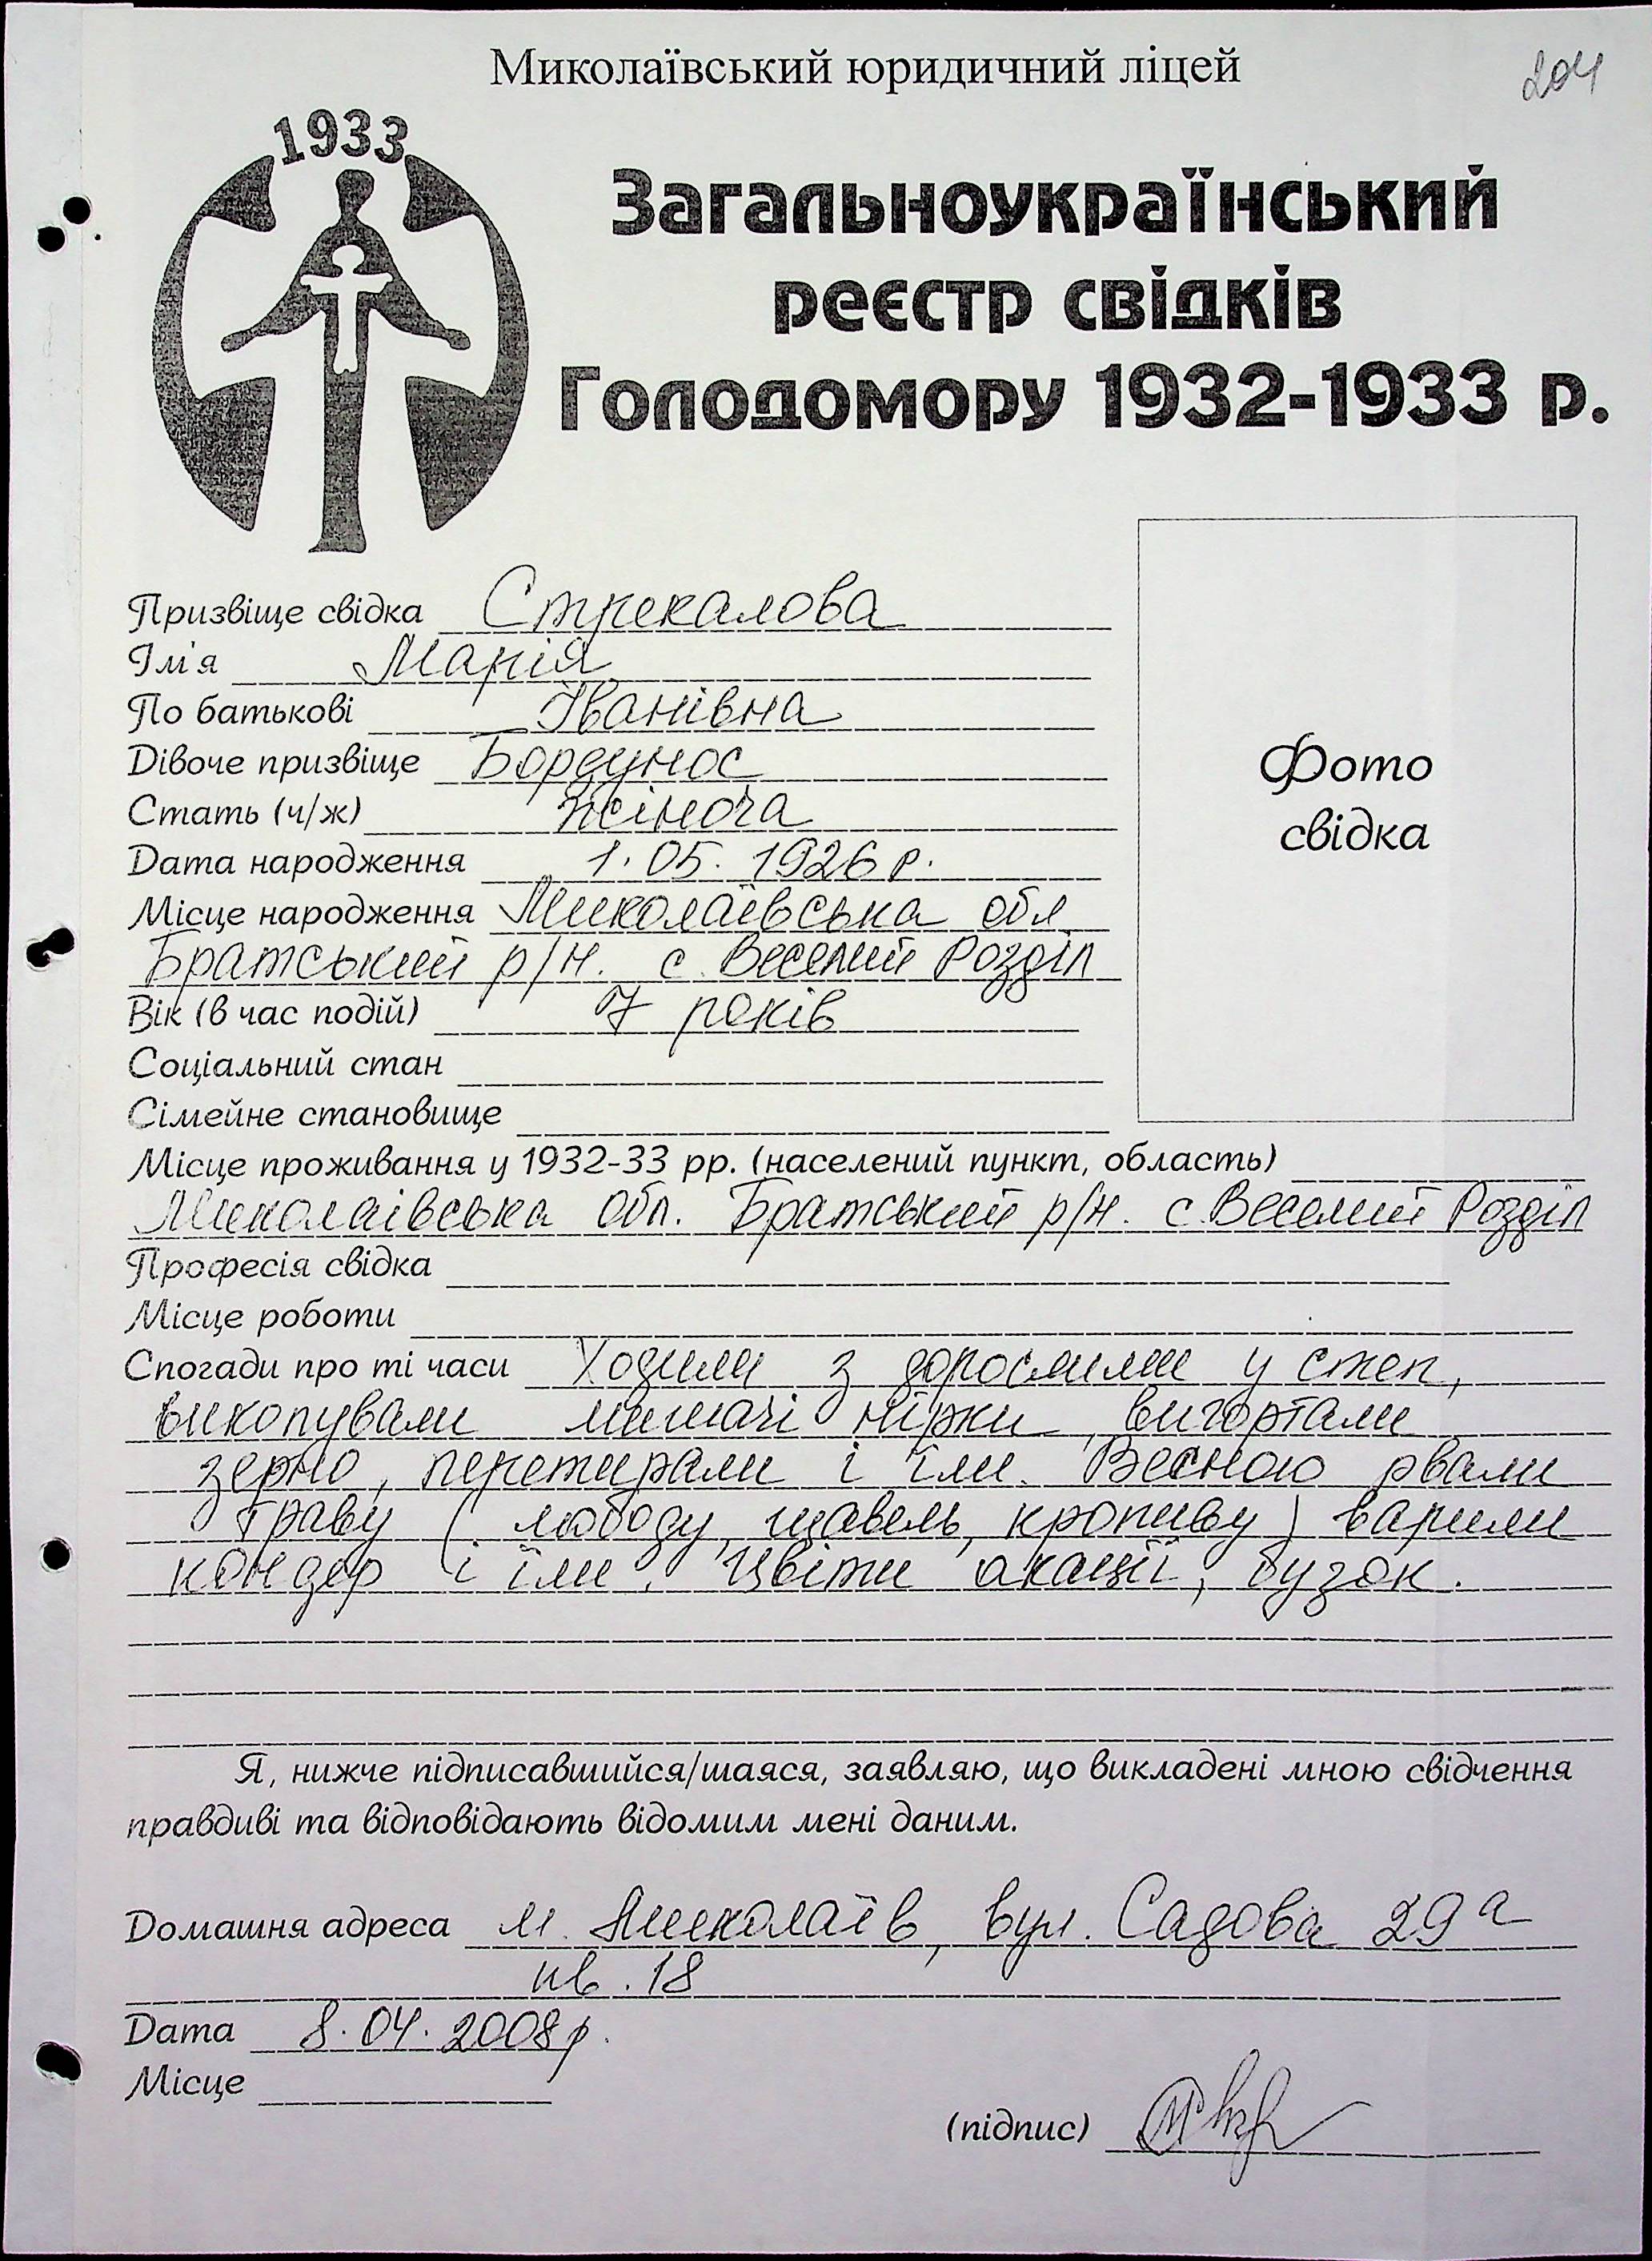 Миколаївський юридичний ліцей
204
1933
Загальноукраїнський
реєстр свідків
Голодомору 1932-1933 р.
Призвіще свідка Стрекалова
Ім'я Марія
По батькові Іванівна
Дівоче призвіще Бордунос
Стать (ч/ж) жіноча
Дата народження 1.05.1926 р.
Місце народження Миколаївська обл
Братський р/н. с. Веселий Розділ
Вік (в час подій) 7 років
Соціальний стан
Сімейне становище
Фото
свідка
Місце проживання у 1932-33 рр. (населений пункт, область)
Миколаївська обл. Братський р/н. с. Веселий Розділ
Професія свідка
Місце роботи
Спогади про ті часи Ходили з дорослими у степ,
викопували мишачі нірки, вигортали
зерно, перетирали і їли. Весною рвали
траву (лободу, щавель, кропиву) варили
кондер і їли. Цвіти акації, бузок.
Я, нижче підписавшийся/шаяся, заявляю, що викладені мною свідчення
правдиві та відповідають відомим мені даним.
Домашня адреса м. Миколаїв, вул. Садова 29а
кв. 18
Дата 8.04.2008р.
Місце
(підпис)